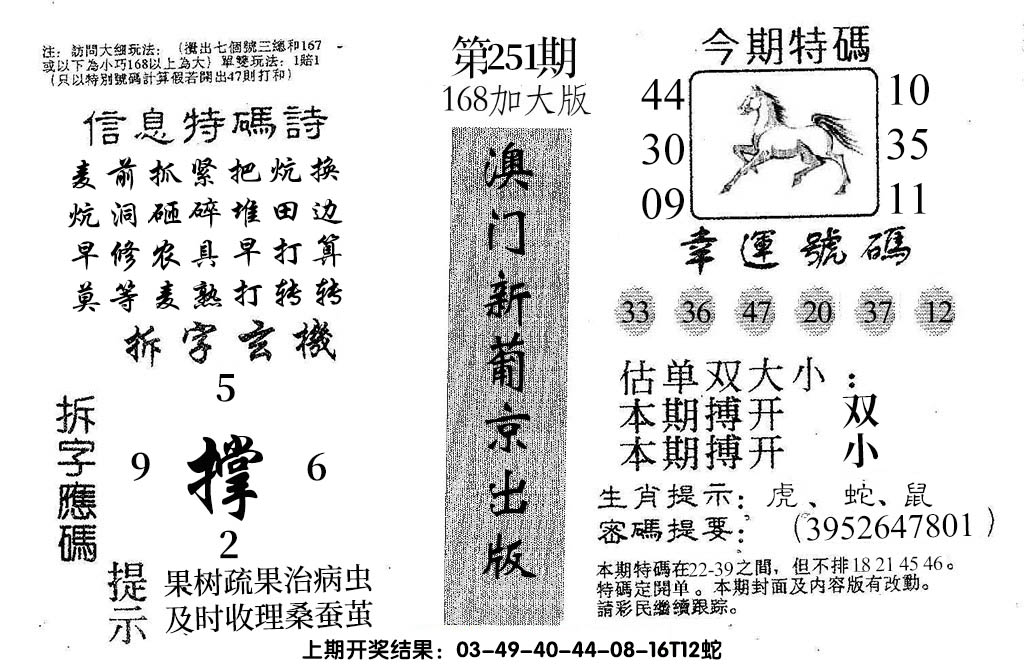 注：訪問大細玩法：（攪出七個號三總和167
或以下為小巧168以上為大）單雙玩法：1賠1
（只以特別號碼計算假若開出47則打和）
信息特碼詩
麦前抓紧把炕换
炕洞砸碎堆田边
早修农具早打算
莫等麦熟打转转
拆字玄機
拆字應碼
5
9
撑
6
2
提示
果树疏果治病虫
及时收理桑蚕茧
第251期
168加大版
澳门新葡京出版
今期特碼
44
30
09
10
35
11
幸運號碼
33 36 47 20 37 12
估单双大小：
本期搏开 双
本期搏开 小
生肖提示：虎、蛇、鼠
密碼提要：（3952647801）
本期特碼在22-39之間，但不排18 21 45 46。
特碼定開单。本期封面及内容版有改動。
請彩民繼續跟踪。
上期开奖结果：03-49-40-44-08-16T12蛇